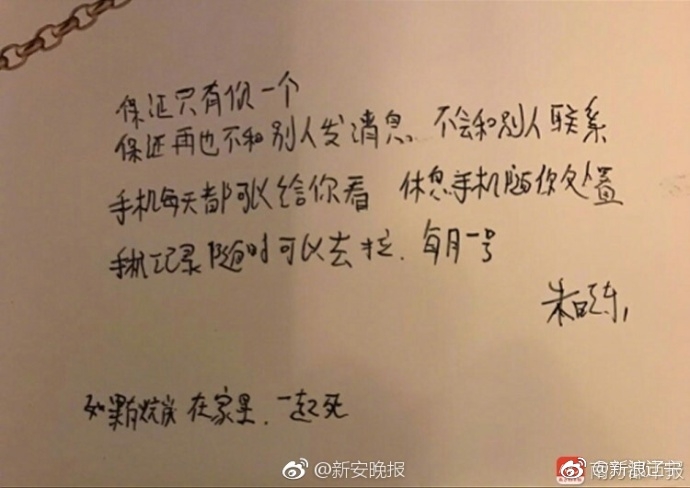 保证只有你一个
保证再也不和别人发消息 不会和别人联系
手机每天都可以给你看 休息手机随你处置
手机记录随时可以去拉. 每月一号
朱晓东
如果有炕炭在家里. 一起死
@新安晚报
@新浪辽宁